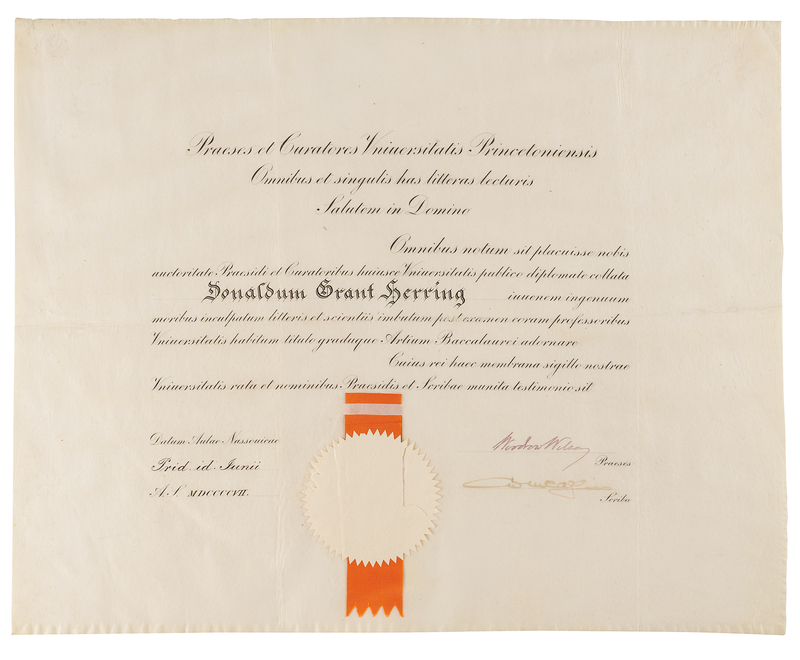 Praeses et Curatores Vniuersitatis Princetoniensis
Omnibus et singulis has litteras lecturis
Salutem in Domino
Omnibus notum sit placuisse nobis
auctoritate Praesidi et Curatoribus huiusce Vniuersitatis publico diplomate collata
Donaldum Grant Herring iauenem ingenuum
moribus inculpatum litteris et scientiis imbutum post examen coram professoribus
Vniuersitatis habitum titulo graduque Artium Baccalaurei adornare
Cuius rei haec membrana sigillo nostrae
Vniuersitatis rata et nominibus Praesidis et Scribae munita testimonio sit
Datum Aulae Nassouicae
Prid id Junii
A.S. MDCCCCVII.
Woodrow Wilson
Praeses
Scriba